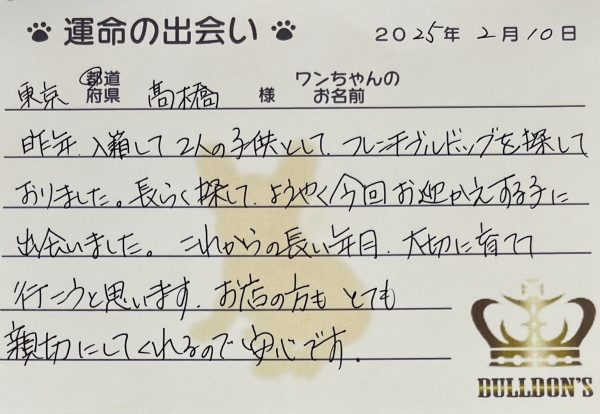 運命の出会い 2025年 2月 10日
東京 都道府県 髙橋 様 ワンちゃんのお名前
昨年、入籍して2人の子供として、フレンチブルドッグを探して
おりました。長らく探して、ようやく今回お迎かえする子に
出会いました。これからの長い年月、大切に育てて
行こうと思います。お店の方も とても
親切にしてくれるので安心です。
DULLDON'S